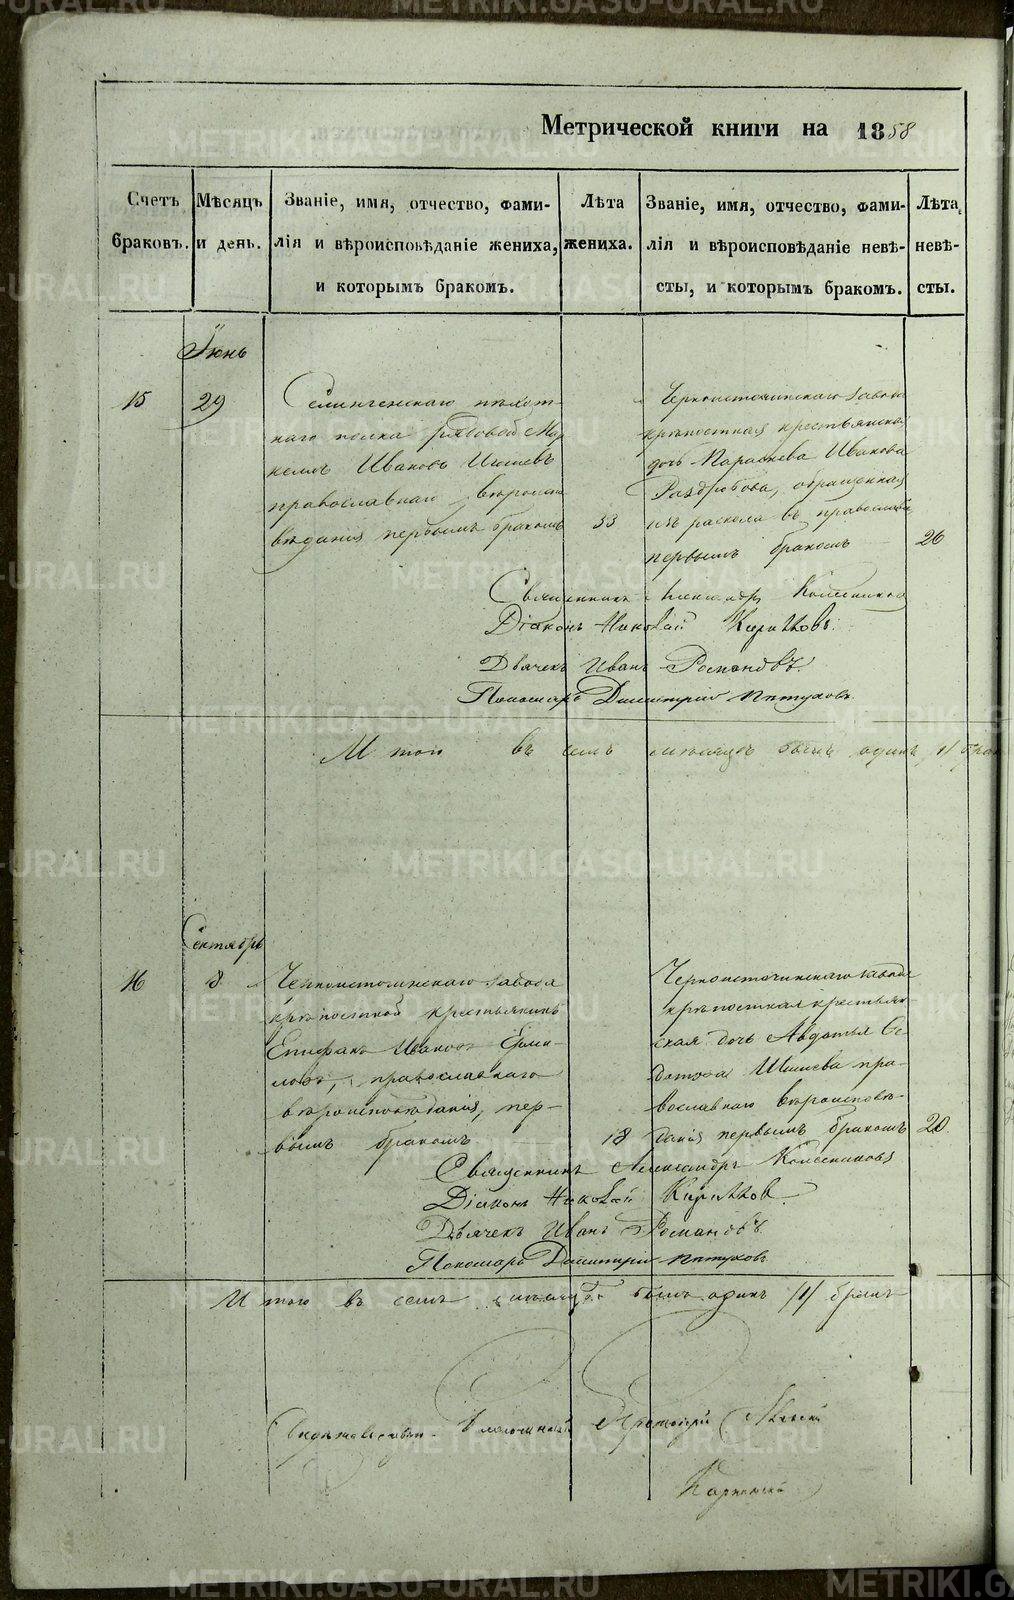 Метрической книги на 1858
Счетъ браковъ.
Мѣсяцъ и день.
Званіе, имя, отчество, фами-
лія и вѣроисповѣданіе жениха,
и которымъ бракомъ.
Лѣта жениха.
Званіе, имя, отчество, фами-
лія и вѣроисповѣданіе невѣ-
сты, и которымъ бракомъ.
Лѣта невѣ-
сты.
Іюнь
15
29
Селингенскаго пѣхот-
наго полка рядовой Мар
келлъ Ивановъ
православнаго вѣроиспо
вѣданія первымъ бракомъ
33
Черноисточинскаго завода
крѣпостная крестьянская
дочь Параскева Иванова
Раздробова, обращенная
изъ раскола въ православіе
первымъ бракомъ
26
Священникъ Александръ Колесников
Діаконъ Николай
Дьячекъ Иванъ Романовъ
Пономарь Димитрій Пѣтуховъ
Итого въ семъ мѣсяцѣ былъ одинъ /1/ бракъ
Сентябрь
16
8
Черноисточинскаго завода
крѣпостной крестьянинъ
Епифанъ Ивановъ Ерми-
ловъ, православнаго
вѣроисповѣданія, пер-
вымъ бракомъ
18
Черноисточинскаго завода
крѣпостная крестьян
ская дочь Авдотья Ѳе-
дотова Шишева пра-
вославнаго вѣроисповѣ-
данія первымъ бракомъ
20
Священникъ Александръ Колесниковъ
Діаконъ Николай
Дьячекъ Иванъ Романовъ
Пономарь Димитрій Пѣтуховъ
Итого въ семъ мѣсяцѣ былъ одинъ /1/ бракъ
Благочинный Протоіерей
METRIKI.GASO-URAL.RU